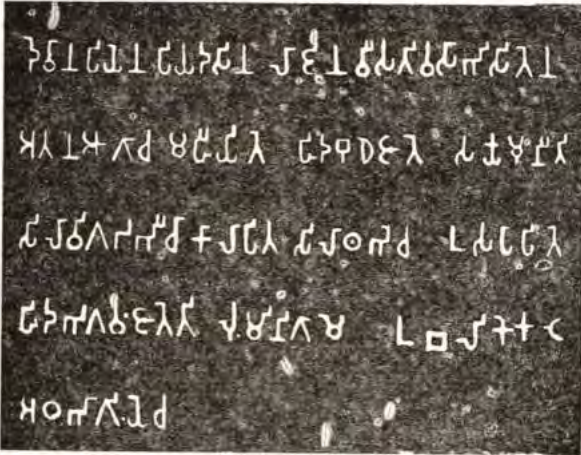 𑀤𑁂𑀯𑀸𑀦𑀧𑀺𑀬𑁂𑀦 𑀧𑀺𑀬𑀤𑀲𑀺𑀦 𑀮𑀸𑀚𑀺𑀦 𑀯𑀻𑀲𑀢𑀺𑀯𑀲𑀸𑀪𑀺𑀲𑀺𑀢𑁂𑀦
𑀅𑀢𑀦 𑀆𑀕𑀸𑀘 𑀫𑀳𑀻𑀬𑀺𑀢𑁂 𑀳𑀺𑀤 𑀩𑀼𑀥𑁂 𑀚𑀸𑀢𑁂 𑀲𑀓𑁆𑀬𑀫𑀼𑀦𑀺𑀢𑀺
𑀲𑀺𑀮𑀸𑀯𑀺𑀕𑀟𑀪𑀻𑀘𑀸 𑀓𑀸𑀮𑀸𑀧𑀺𑀢 𑀲𑀺𑀮𑀸𑀣𑀪𑁂𑀘 𑀉𑀲𑀧𑀸𑀧𑀺𑀢𑁂
𑀳𑀺𑀤 𑀪𑀕𑀯𑀁 𑀚𑀸𑀢𑁂𑀢𑀺 𑀮𑀼𑀁𑀫𑀺𑀦𑀺𑀕𑀸𑀫𑁂 𑀉𑀩𑀮𑀺𑀓𑁂 𑀓𑀝𑁂
𑀅𑀞𑀪𑀸𑀕𑀺𑀬𑁂 𑀘